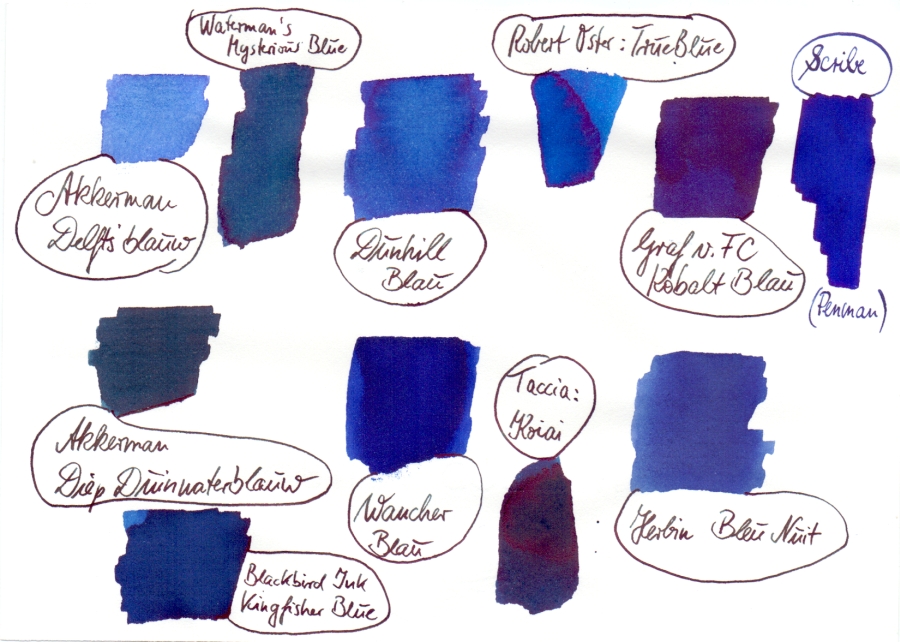 Waterman's
Mysterious Blue
Robert Oster: True Blue
Scribe
Akkerman
Delfts blauw
Dunhill
Blau
Graf v. FC
Kobalt Blau
(Penman)
Akkerman
Diep Duinwaterblauw
Wancher
Blau
Taccia:
Koiai
Herbin Bleu Nuit
Blackbird Ink
Kingfisher Blue